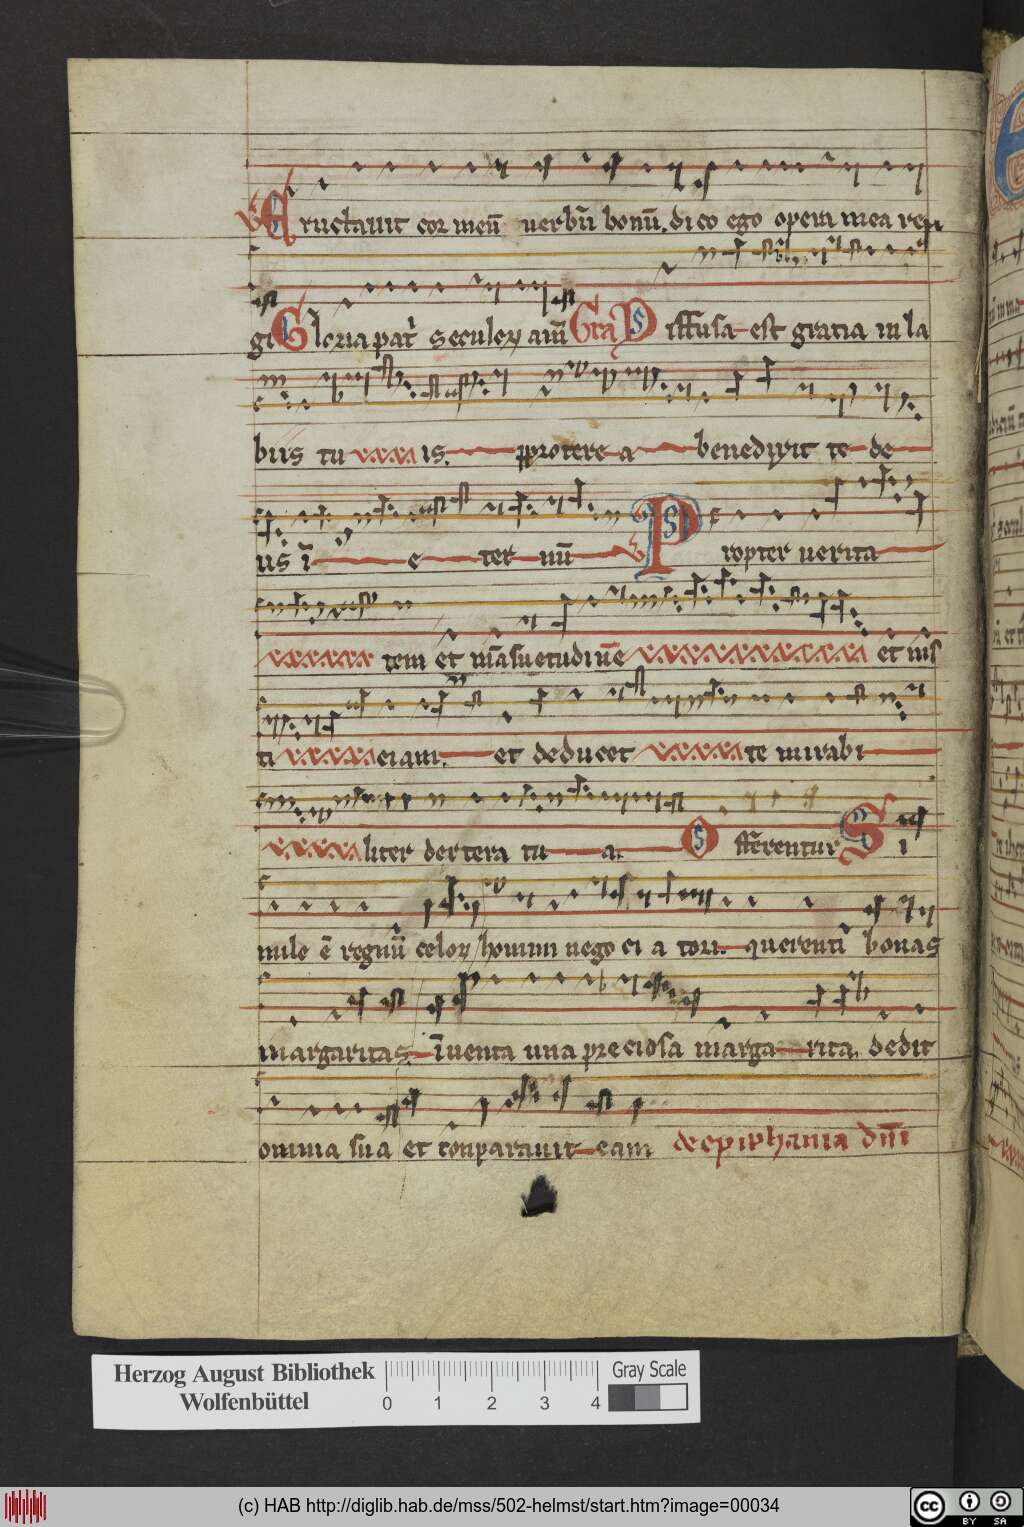 Eructauit cor meū uerbū bonū. dico ego opera mea re
gi Gloria patr̉ seculoꝝ am̄ Gra Diffusa est gratia in la
biis tu is. propterea benedixit te de
us ī e ter nū Propter uerita
tem et māsuetudinē et ius
ti ciam. et deducet te mirabi
liter dextera tu a. O fferentur Si
mile ē regnū celoꝝ homini negociatori. querenti bonas
margaritas. īuenta una preciosa margarita. dedit
omnia sua et cōparauit eam de epiphania dn̄i
Herzog August Bibliothek
Wolfenbüttel
0 1 2 3 4
Gray Scale
(c) HAB http://diglib.hab.de/mss/502-helmst/start.htm?image=00034
cc BY SA